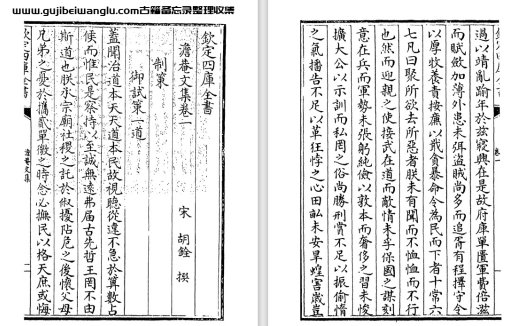 www.gujibeiwanglu.com古籍备忘录整理收集
欽定四庫全書
澹菴文集卷一
宋 胡銓 撰
制策
御試策一道
蓋聞治道本天天道本民故視聽從違不急於算數占
候而惟民是察持以至誠無遠弗届古先哲王罔不由
斯道也朕承宗廟社稷之託於俶擾阽危之後懷父母
兄弟之憂於攜貳單微之時念必撫民以格天庶或悔
欽定四庫全書
澹菴文集
過以靖亂踰年於兹寢興在是故府庫單匱軍費倍滋
而賦斂加薄外患未弭盜賊尚多而追胥有程擇守令
以厚牧養責按廉以戢貪暴命令為民而下者十常六
七凡曰聚所欲去所惡者朕未有聞而不恤恤而不行
也然而迎親之使接武在道而敵情未孚保國之謀刻
意在兵而軍勢未張躬純儉以敦本而奢侈之習未悛
擴大公以示訓而私罔之俗尚勝刑賞不足以振偷惰
之氣播告不足以革狂悖之心田畆未安旱蝗害歲豈